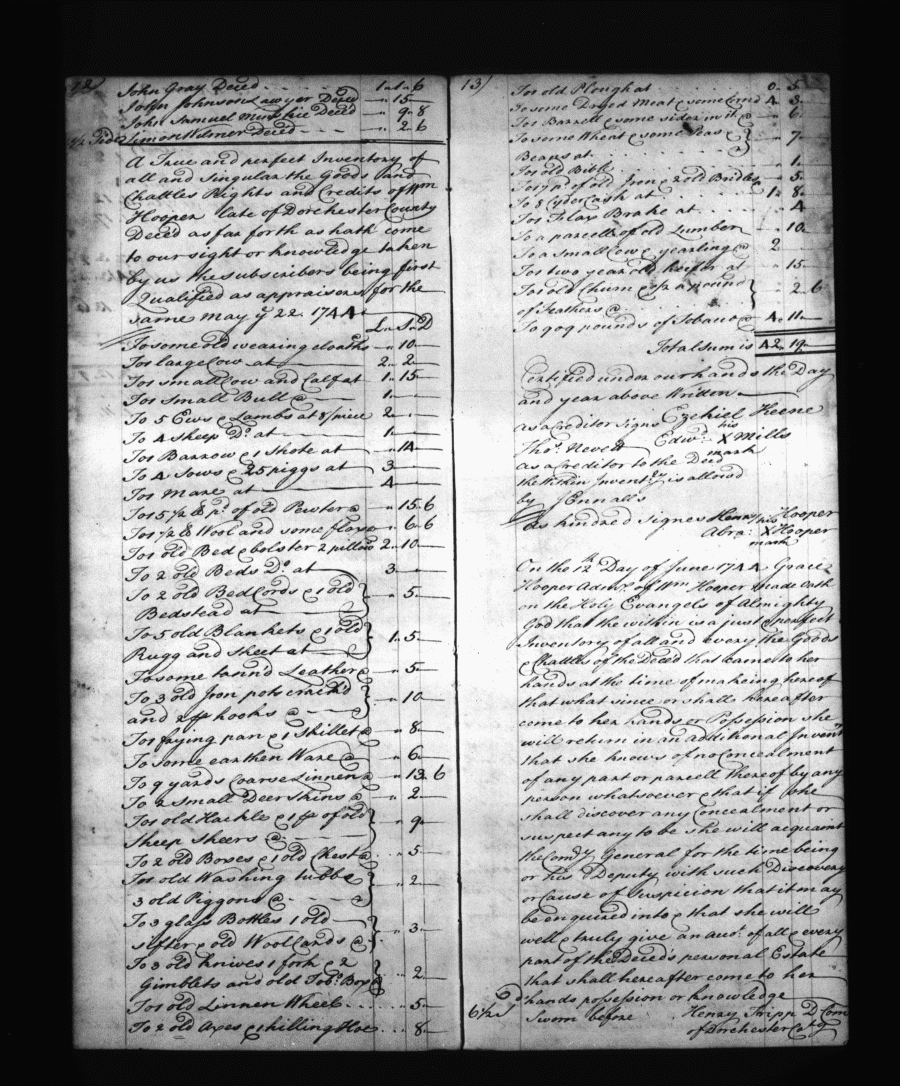 John Gray Deced 1 " 1 " 6
John Johnson Lawyer Deced " 15 "
John Samuel Minskie Deced " 9 " 8
Simon Wilmer Deced " 2 " 6
A True and perfect Inventory of
all and Singular the Goods and
Chattles Rights and Credits of Wm
Hooper late of Dorchester County
Deced as far forth as hath come
to our sight or knowledge taken
by us the subscribers being first
Qualified as appraisors for the
same May ye 22. 1744.
L " S " D
To some old wearing cloaths " 10 "
To 1 large Cow at 2 " 2 "
To 1 small Cow and Calf at 1 " 15
To 1 Small Bull @ 1 "
To 5 Ews & Lambs at 8/ piece 2 "
To 4 sheep Do. at 1 "
To 1 Barrow & 1 Shote at " 14
To 4 Sows & 25 piggs at 3
To 1 Mare at 4
To 15 1/2 lb pr. of old Pewter @ " 15 " 6
To 1/2 lb Wool and some flax @ " 6 " 6
To 1 old Bed & bolster 2 pillows 2 " 10
To 2 old Beds Do. at 3
To 2 old Bed Cords & 1 old
Bedstead at " 5
To 5 old Blankets & 1 old
Rugg and sheet at 1 " 5
To some tannd Leather @ " 5
To 3 old Iron pots crackd
and 2 pr hooks @ " 10
To 1 frying pan & 1 Skillet @ " 8
To some earthen Ware @ " 6
To 9 yards Coarse Linnen @ " 13 " 6
To 2 Small Deer Skins @ " 2
To 1 old Hackle & 1 pr of old
Sheep Sheers @ " 9
To 2 old Boxes & 1 old Chest @ " 5
To 1 old Washing tubb &
3 old Piggons @ " 2
To 3 glass Bottles 1 old
sifter & old Wooll Cards @ " 3
To 3 old knives 1 fork & 2
Gimblets and old Tobo. Box @ " 2
To 1 old Linnen Wheel " 5
To 2 old Axes & 1 hilling Hoe " 8
13/
To 1 old Plough at 0 " 5
To some Dryed Meat & some 4 " 3
To 1 Barrell & some sider in it @ " 6
To some Wheat & some Peas &
Beans at " 7
To 1 old Bible " 1
of old Iron & 2 old Bridles " 5
To 8 Cyder Cask at 1 " 8
To 1 Flax Brake at " 4
To a parcell of old Lumber " 10
To a small Cow & yearling @ 2
To 1 two year old heifer at " 15
To 1 old Churn & a pound
of Feathers @ " 2 " 6
To 909 pounds of Tobacco @ 4 " 11
Total sum is 42 " 19
Certified under our hands the Day
and year above Written
as a Creditor Signs Ezekiel Keene
his
Thos. Nevett Edwd. X Mills
mark
as a Creditor to the Deced
the within Inventry is allowed
by J Ennalls
as kindred Signes Henry Hooper
his
Abra: X Hooper
mark
On the 12th Day of June 1744 Grace
Hooper Admx. of Wm Hooper made Oath
on the Holy Evangels of Almighty
God that the within is a just & perfect
Inventory of all and every the Goods
& Chattles of the Deced that came to her
hands at the time of makeing hereof
that what since or shall hereafter
come to her hands or Possession she
will return in an additional Invent
that she knows of no Concealment
of any part or parcell thereof by any
person whatsoever & that if she
shall discover any Concealment or
suspect any to be she will acquaint
the Comry General for the time being
or his Deputy with such Discovery
or Cause of Suspicion that it may
be enquired into & that she will
well & truly give an Acct. of all & every
part of the Deceds personal Estate
that shall hereafter come to her
hands possession or knowledge
Sworn before Henry Tripp D Com
of Dorchester Coty